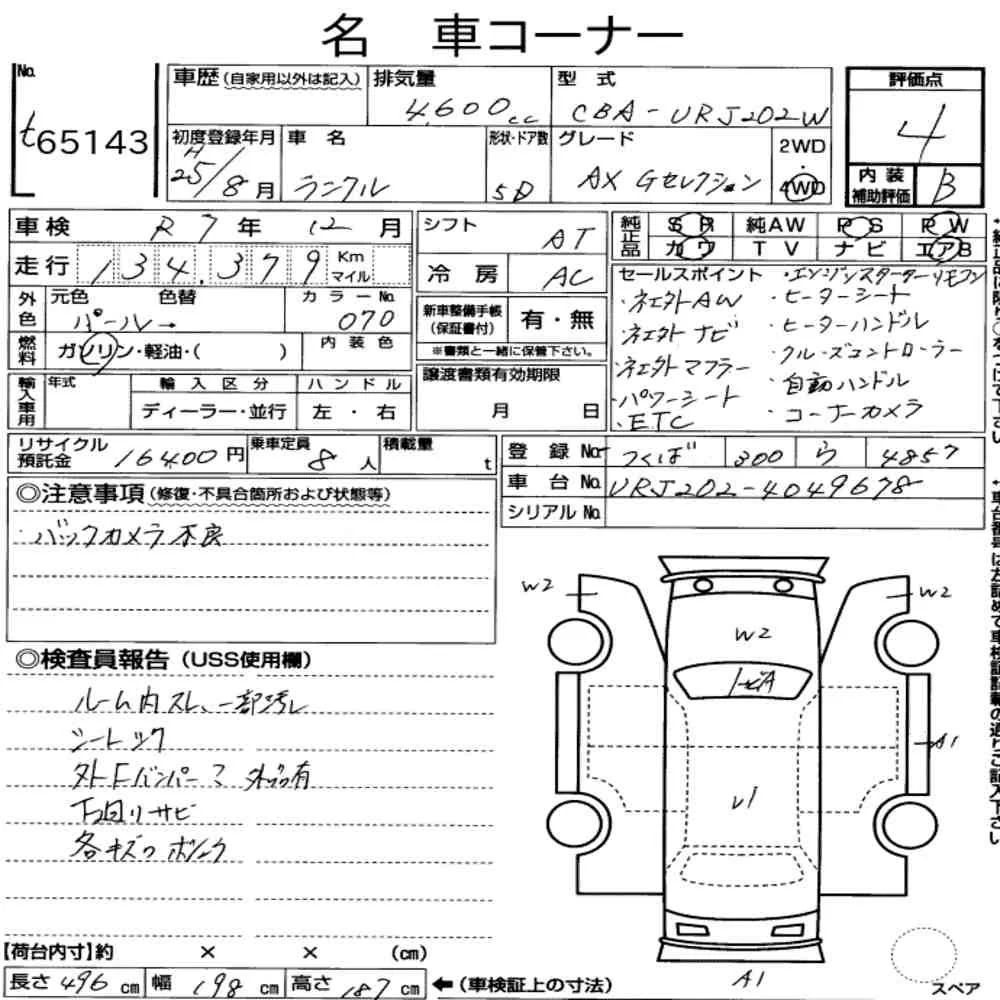 名 車コーナー
No. t65143
車歴 (自家用以外は記入) 排気量 4,600cc 型式 CBA-URJ202W
評価点 4
内装補助評価 B
初度登録年月 H25/8月 車名 ランクル 形状・ドア数 5D グレード AX Gセレクション 2WD・4WD
車検 R7年12月 シフト AT
純正品 SR 純AW PS PW
カワ TV ナビ エアB
走行 134,379 Km マイル 冷房 AC
外色 元色 パール→ 色替 カラーNo. 070
新車整備手帳(保証書付) 有・無
※書類と一緒に保管下さい。
燃料 ガソリン・軽油・( ) 内装色
輸入車用 年式 輸入区分 ハンドル
ディーラー・並行 左・右
譲渡書類有効期限 月 日
セールスポイント
・エンジンスターターリモコン
・社外AW
・ヒーターシート
・社外ナビ
・ヒーターハンドル
・社外マフラー
・クルーズコントローラー
・パワーシート
・自動ハンドル
・ETC
・コーナーカメラ
リサイクル預託金 16400円 乗車定員 8人 積載量 t
登録No. つくば 300 ら 4857
車台No. URJ202-4049678
シリアルNo.
◎注意事項 (修復・不具合箇所および状態等)
・バックカメラ不良
◎検査員報告 (USS使用欄)
ルーム内スレ、一部汚レ
シート
外Fバンパー 有
下回りサビ
各キズ
W2
W2
W2
A1
A1
【荷台内寸】約 × × (cm)
長さ 496 cm 幅 198 cm 高さ 187 cm ←(車検証上の寸法)
スペア